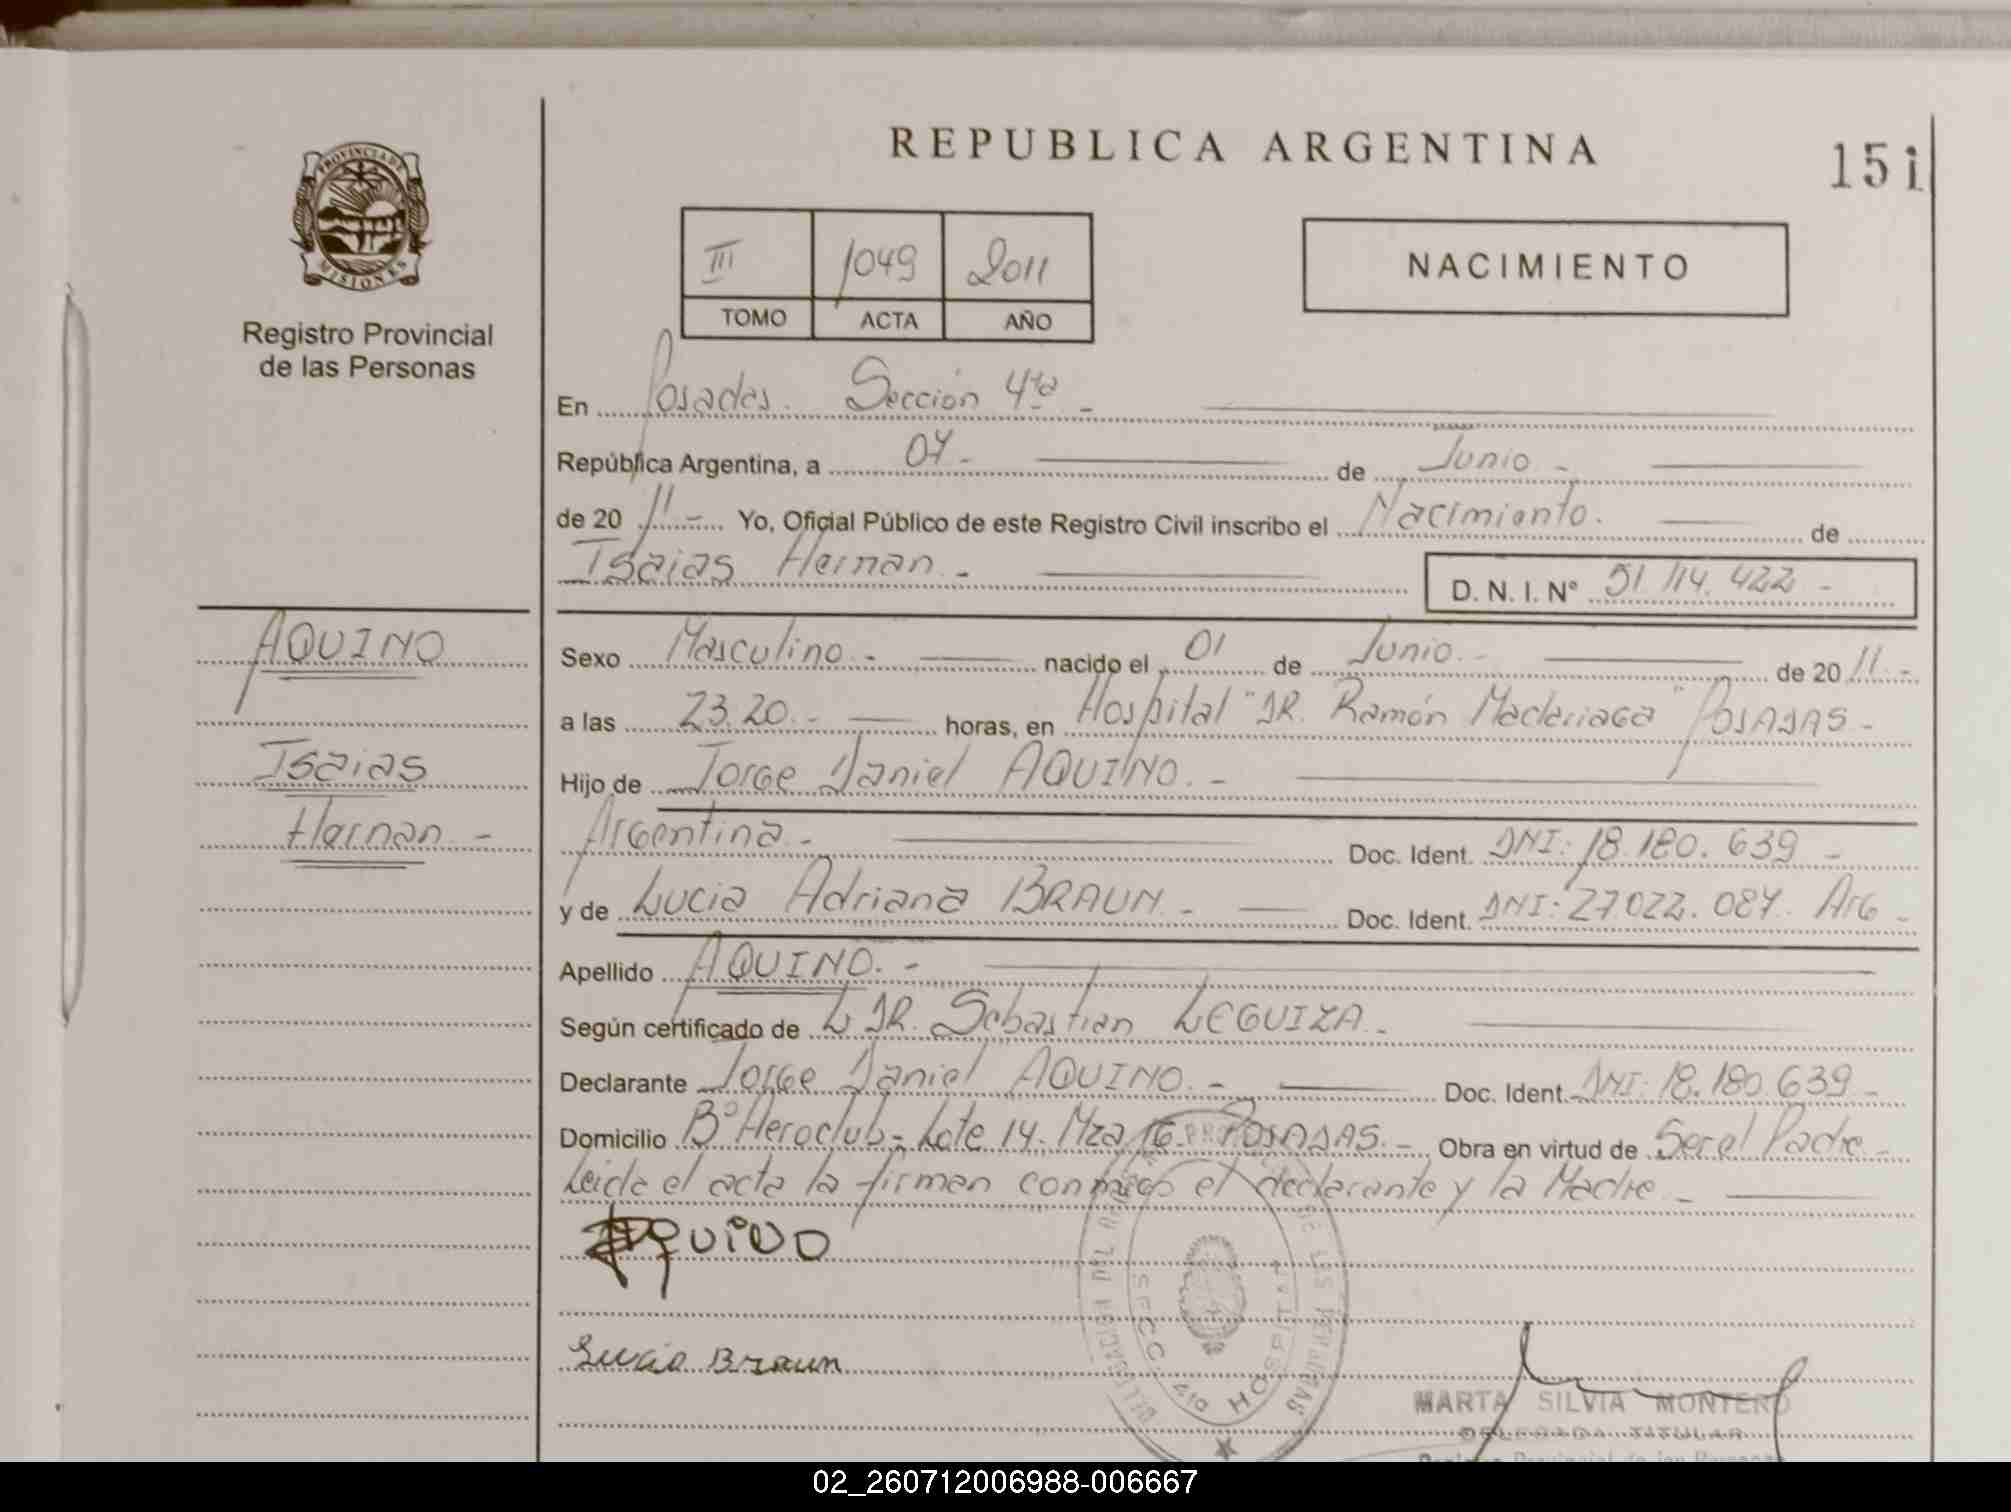 REPUBLICA ARGENTINA
151
PROVINCIA DE
MISIONES
Registro Provincial
de las Personas
III 1049 2011
TOMO ACTA AÑO
NACIMIENTO
En Posadas. Sección 4ta -
República Argentina, a 07 - de Junio -
de 20 11 - Yo, Oficial Público de este Registro Civil inscribo el Nacimiento. de
Isaias Hernan - D. N. I. N° 51.114.422 -
AQUINO
Isaias
Hernan -
Sexo Masculino - nacido el 01 de Junio - de 20 11 -
a las 23.20 - horas, en Hospital "DR. Ramón Madariaga" POSADAS -
Hijo de Jorge Daniel AQUINO. -
Argentina - Doc. Ident. DNI: 18.180.639 -
y de Lucia Adriana BRAUN - Doc. Ident. DNI: 27.022.087. Arg -
Apellido AQUINO. -
Según certificado de DR. Sebastian LEGUIZA -
Declarante Jorge Daniel AQUINO. - Doc. Ident. DNI: 18.180.639 -
Domicilio B° Aeroclub - Lote 14. Mza 16 - POSADAS. - Obra en virtud de Ser el Padre -
Leida el acta la firman conmigo el declarante y la Madre -
AQUINO
Lucia Braun
SECC. 4ta HOSPITAL
MARTA SILVIA MONTERO
DELEGADA TITULAR
02_260712006988-006667